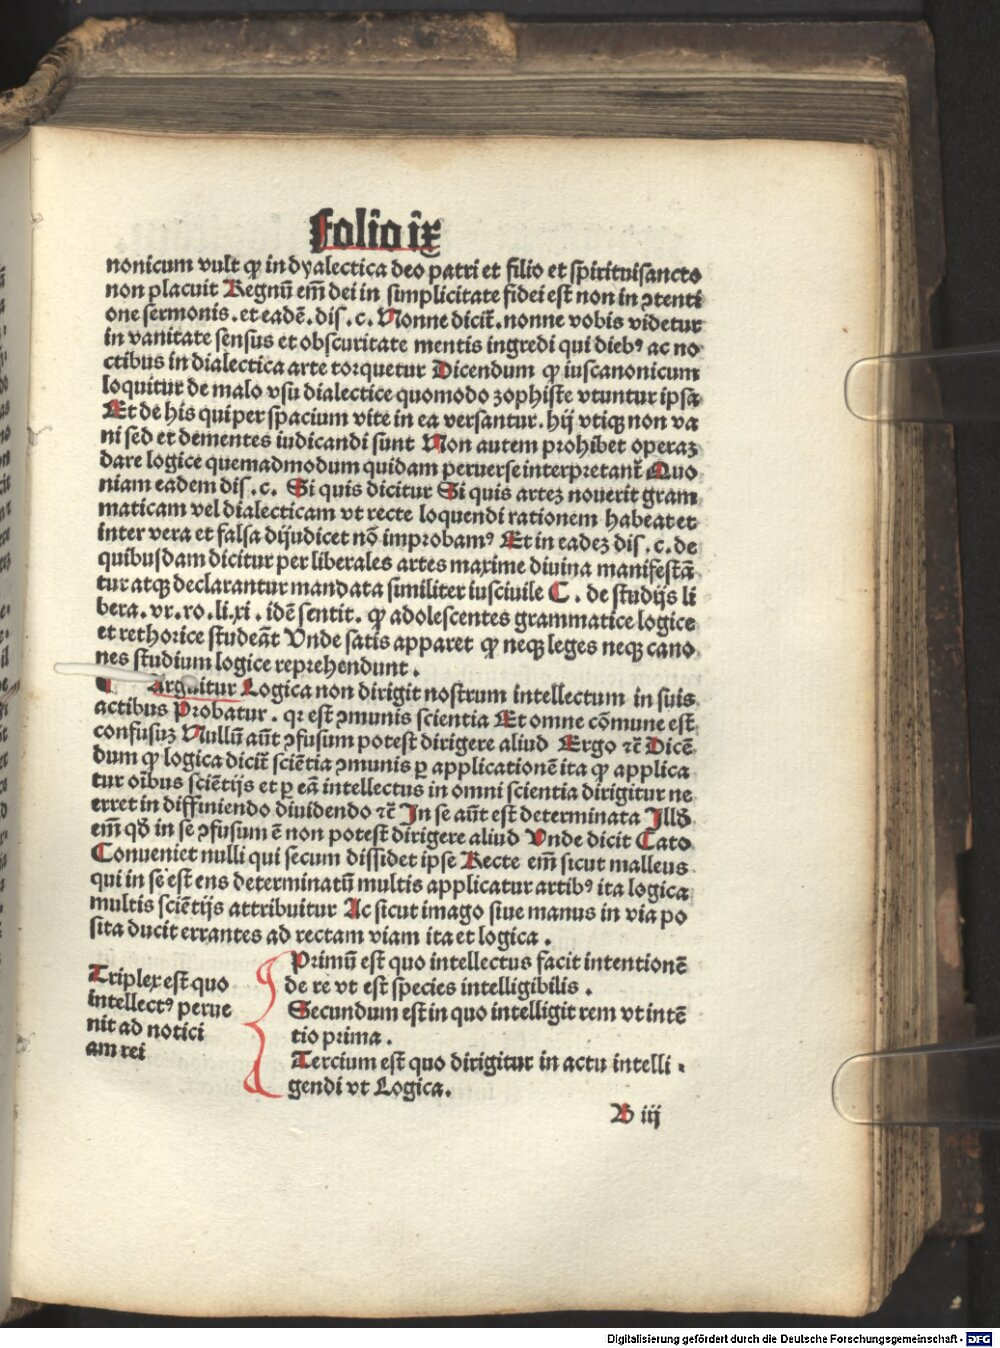 Folio ix
nonicum vult ꝙ in dyalectica deo patri et filio et spirituisancto
non placuit Regnū em̄ dei in simplicitate fidei est non in ↄtenti
one sermonis. et eadē. dis. c. Nonne dicit᷑. nonne vobis videtur
in vanitate sensus et obscuritate mentis ingredi qui diebꝰ ac no
ctibus in dialectica arte torquetur Dicendum ꝙ iuscanonicum
loquitur de malo vsu dialectice quomodo zophiste vtuntur ipsa
Et de his qui per spacium vite in ea versantur. hij vtiqꝫ non va
ni sed et dementes iudicandi sunt Non autem prohibet operaꝫ
dare logice quemadmodum quidam peruerse interpretant᷑ Quo
niam eadem dis. c. Si quis dicitur Si quis arteꝫ nouerit gram
maticam vel dialecticam vt recte loquendi rationem habeat et
inter vera et falsa dijudicet nō improbamꝰ Et in eadeꝫ dis. c. de
quibusdam dicitur per liberales artes maxime diuina manifestā
tur atqꝫ declarantur mandata similiter iusciuile C. de studijs li
bera. vr. ro. li. xi. idē sentit. ꝙ adolescentes grammatice logice
et rethorice studeāt Vnde satis apparet ꝙ neqꝫ leges neqꝫ cano
nes studium logice reprehendunt.
¶ Arguitur Logica non dirigit nostrum intellectum in suis
actibus Probatur. qꝛ est ↄmunis scientia Et omne cōmune est
confusuꝫ Nullū aūt ↄfusum potest dirigere aliud Ergo ⁊c̄ Dicē
dum ꝙ logica dicit᷑ sciētia ↄmunis ꝑ applicationē ita ꝙ applica
tur oībus sciētijs et ꝑ eā intellectus in omni scientia dirigitur ne
erret in diffiniendo diuidendo ⁊c̄ In se aūt est determinata Illð
em̄ qð in se ↄfusum ē non potest dirigere aliud Vnde dicit Cato
Conueniet nulli qui secum dissidet ipse Recte em̄ sicut malleus
qui in se est ens determinatū multis applicatur artibꝰ ita logica
multis sciētijs attribuitur Ac sicut imago siue manus in via po
sita ducit errantes ad rectam viam ita et logica.
Triplex est quo
intellectꝰ perue
nit ad notici
am rei
Primū est quo intellectus facit intentionē
de re vt est species intelligibilis.
Secundum est in quo intelligit rem vt intē
tio prima.
Tercium est quo dirigitur in actu intelli
gendi vt Logica.
B iij
Digitalisierung gefördert durch die Deutsche Forschungsgemeinschaft - DFG